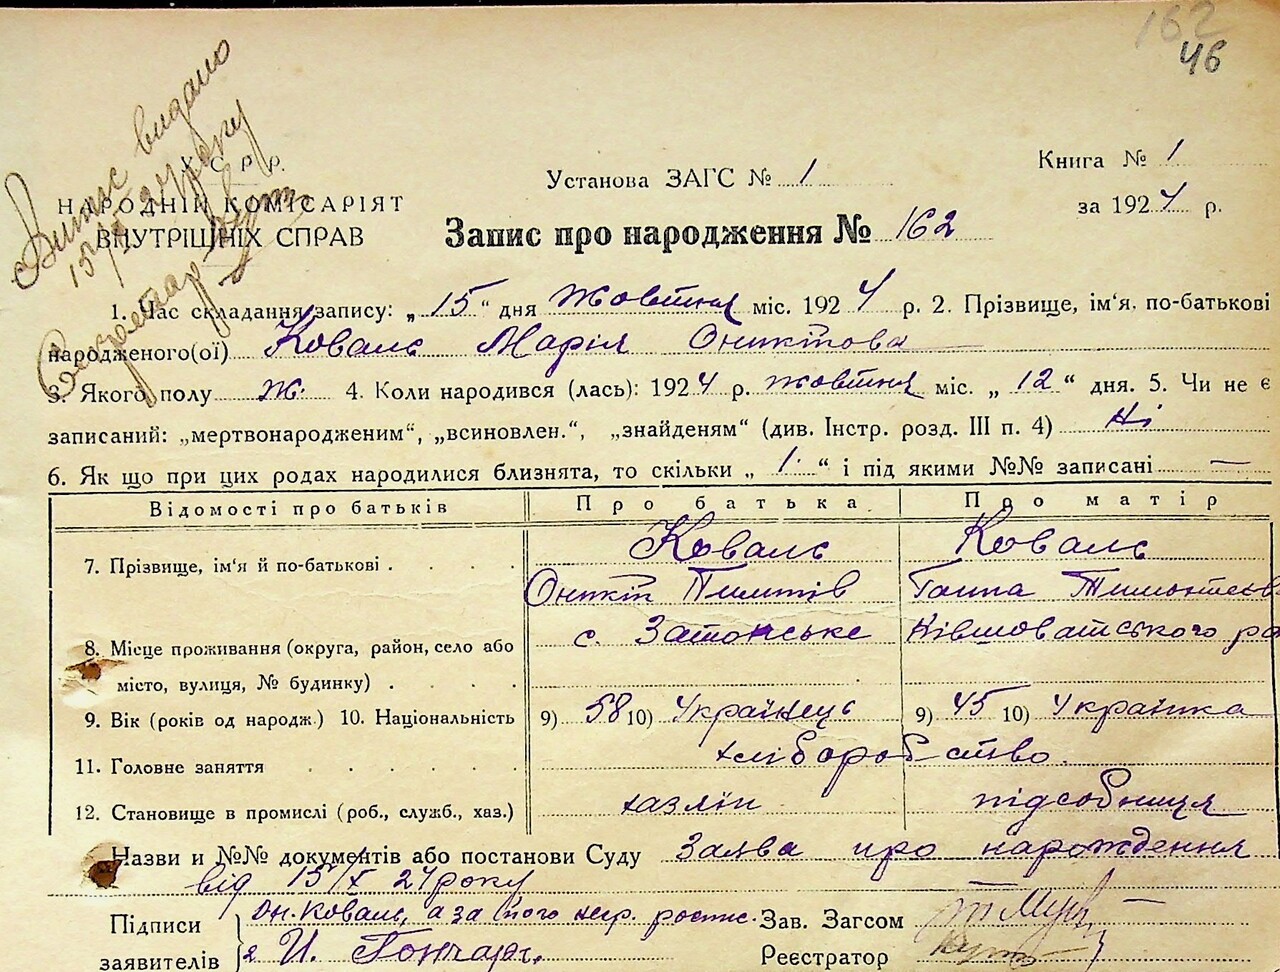 162
46
Витяг видано
15/X 24 року
Секретар
У.С.Р.Р.
НАРОДНІЙ КОМІСАРІЯТ
ВНУТРІШНІХ СПРАВ
Установа ЗАГС № 1
Книга № 1
за 1924 р.
Запис про народження № 162
1. Час складання запису: „ 15 “ дня жовтня міс. 1924 р. 2. Прізвище, ім'я, по-батькові
народженого(ої) Коваль Марія Оникіова
3. Якого полу ж. 4. Коли народився (лась): 1924 р. жовтня міс. „ 12 “ дня. 5. Чи не є
записаний: „мертвонародженим“, „всиновлен.“, „знайденям“ (див. Інстр. розд. III п. 4) Ні
6. Як що при цих родах народилися близнята, то скільки „ 1. “ і під якими №№ записані —
Відомості про батьків Про батька Про матір
7. Прізвище, ім'я й по-батькові . . . . Коваль Коваль
Оникій Ганна
8. Місце проживання (округа, район, село або с. Затонське Ківшоватського ра
місто, вулиця, № будинку) . . . .
9. Вік (років од народж.) 10. Національність 9) 58 10) Українець 9) 45 10) Українка
11. Головне заняття . . . . . хліборобство.
12. Становище в промислі (роб., служб., хаз.) хазяїн підсобниця
Назви и №№ документів або постанови Суду Заява про нарождення
від 15/X 24 року
Підписи Он. Коваль, а за його негр. роспис. Зав. Загсом
заявителів И. Гончар. Реєстратор